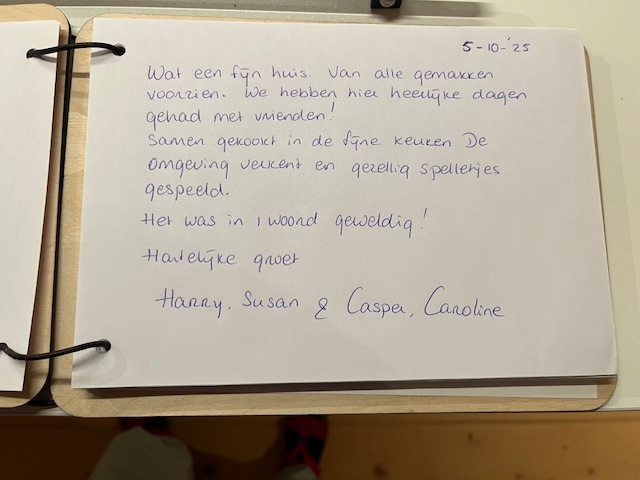 5-10-'25
Wat een fijn huis. Van alle gemakken
voorzien. We hebben hier heerlijke dagen
gehad met vrienden!
Samen gekookt in de fijne keuken. De
omgeving verkent en gezellig spelletjes
gespeeld.
Het was in 1 woord geweldig!
Hartelijke groet
Harry, Susan & Casper, Caroline